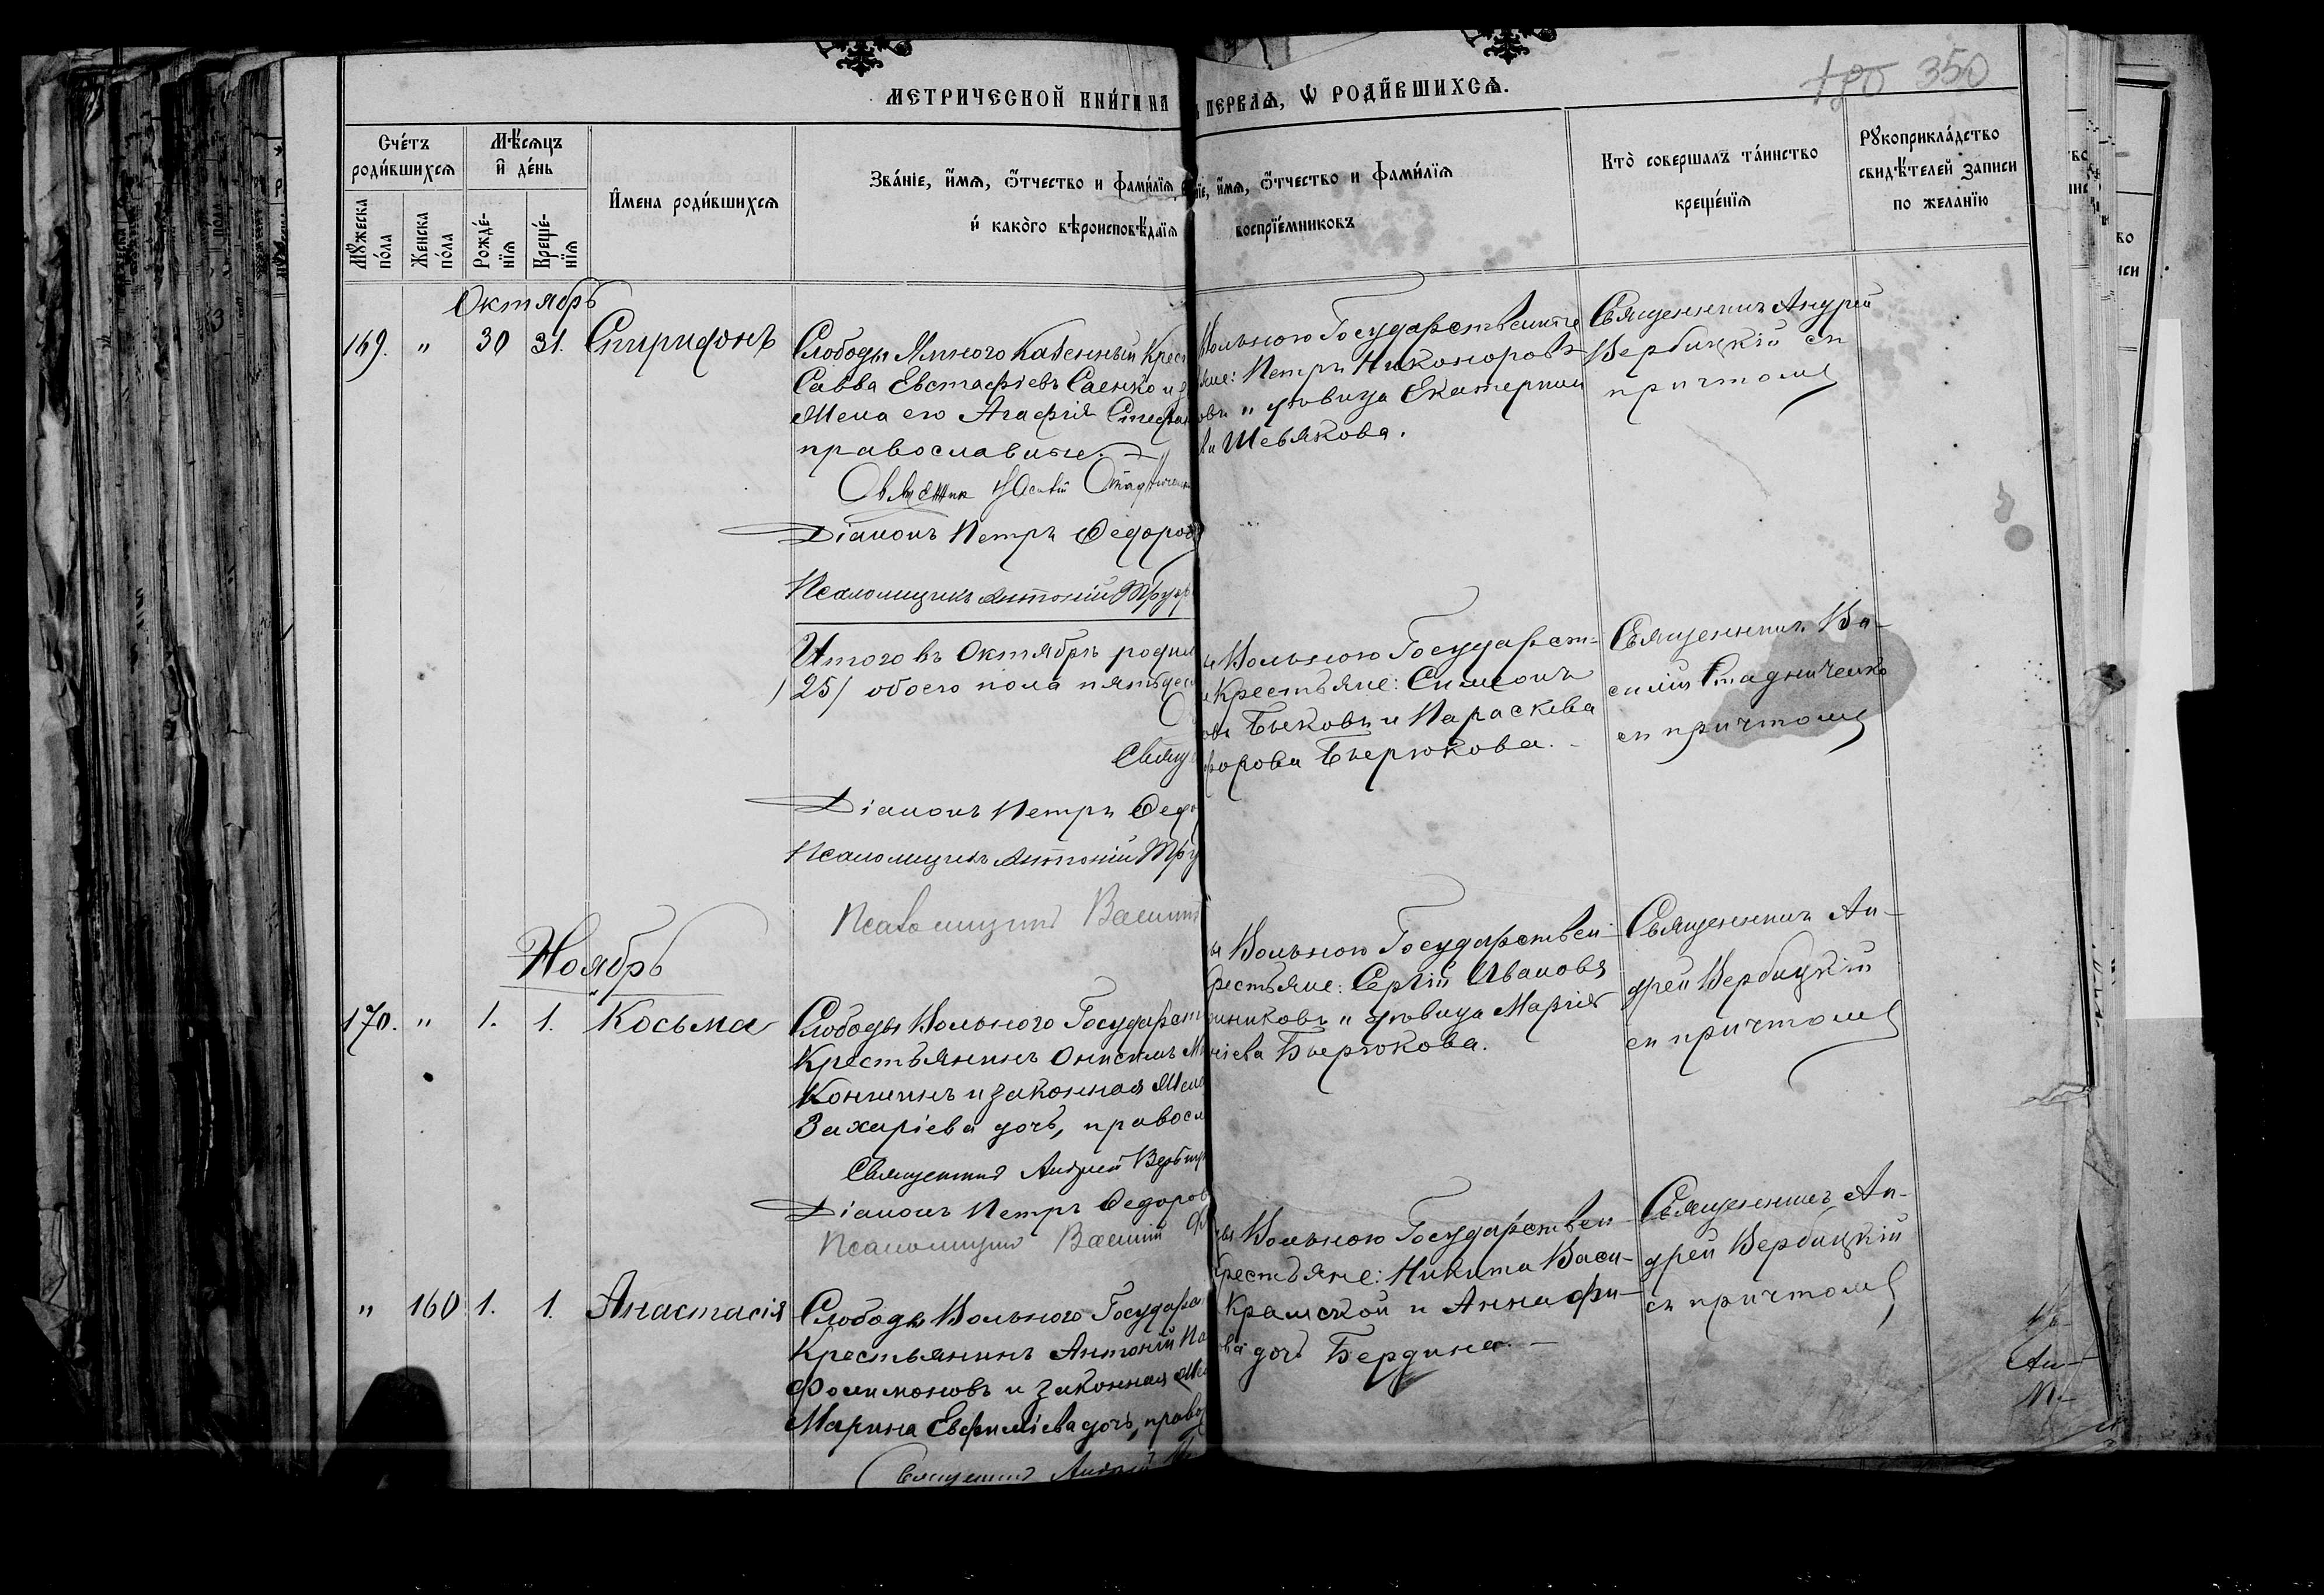 180 350
МЕТРИЧЕСКОЙ КНИ́ГИ НА
ПЕРВАѦ, Ѡ РОДИ́ВШИХСѦ.
Сче́тъ
роди́вшихсѧ
Мѣ́сѧцъ
и҆ де́нь
И҆мена роди́вшихсѧ
Зва́нїе, и҆́мѧ, ѻ҆́тчество и фами́лїѧ
и҆ како́го вѣроисповѣ́данїѧ
и҆́мѧ, ѻ҆́тчество и фами́лїѧ
воспрїе́мниковъ
Кто̀ совершалъ та́инство
креще́нїѧ
Рꙋкоприкла́дство
свидѣ́телей записи
по желанїю
Мꙋ́жеска
по́ла
Женска
по́ла
Рожде́-
нїѧ
Креще́-
нїѧ
Октябрь
169. " 30 31. Спиридонъ
Слободы Ямного Казенный Крест
Савва Евстафіевъ Саенко и з
Жена его Агафія Стефан
православные.
Священник
Діаконъ Петръ Федоров
Псаломщикъ Антоній Труф
Вольного Государственные
яне: Петръ Никоноровъ
овъ и дѣвица Екатерина
ва Шевякова.
Священникъ Андрей
Вербицкій съ
причтомъ
Итого въ Октябрѣ родил
/25/ обоего пола пятьдес
Свящ
Діаконъ Петръ Федо
Псаломщикъ Антоній Тру
Псаломщикъ Василий
ы Вольного Государст-
е Крестьяне: Симеонъ
овъ Быковъ и Параскева
дорова Бирюкова.
Священникъ Ва-
силій Стадниченко
съ причтомъ
Ноябрь
170. " 1. 1. Косьма
Слободы Вольного Государст
Крестьянинъ Онисимъ М
Коншинъ и законная Жена
Захаріева дочь, правосл
Священникъ Андрей Вербиц
Діаконъ Петръ Федоров
Псаломщикъ Василий
ы Вольного Государствен-
рестьяне: Сергій Ивановъ
никовъ и дѣвица Марія
ніева Бирюкова.
Священникъ Ан-
дрей Вербицкій
съ причтомъ
" 160 1. 1. Анастасія
Слободы Вольного Государс
Крестьянинъ Антоній Па
Филимоновъ и законная Же
Марина Евфиміева дочь, право
Священникъ Андрей
ды Вольного Государствен-
рестьяне: Никита Васи-
Крамской и Анна Фи-
ова дочь Бердина.
Священникъ Ан-
дрей Вербицкій
съ причтомъ